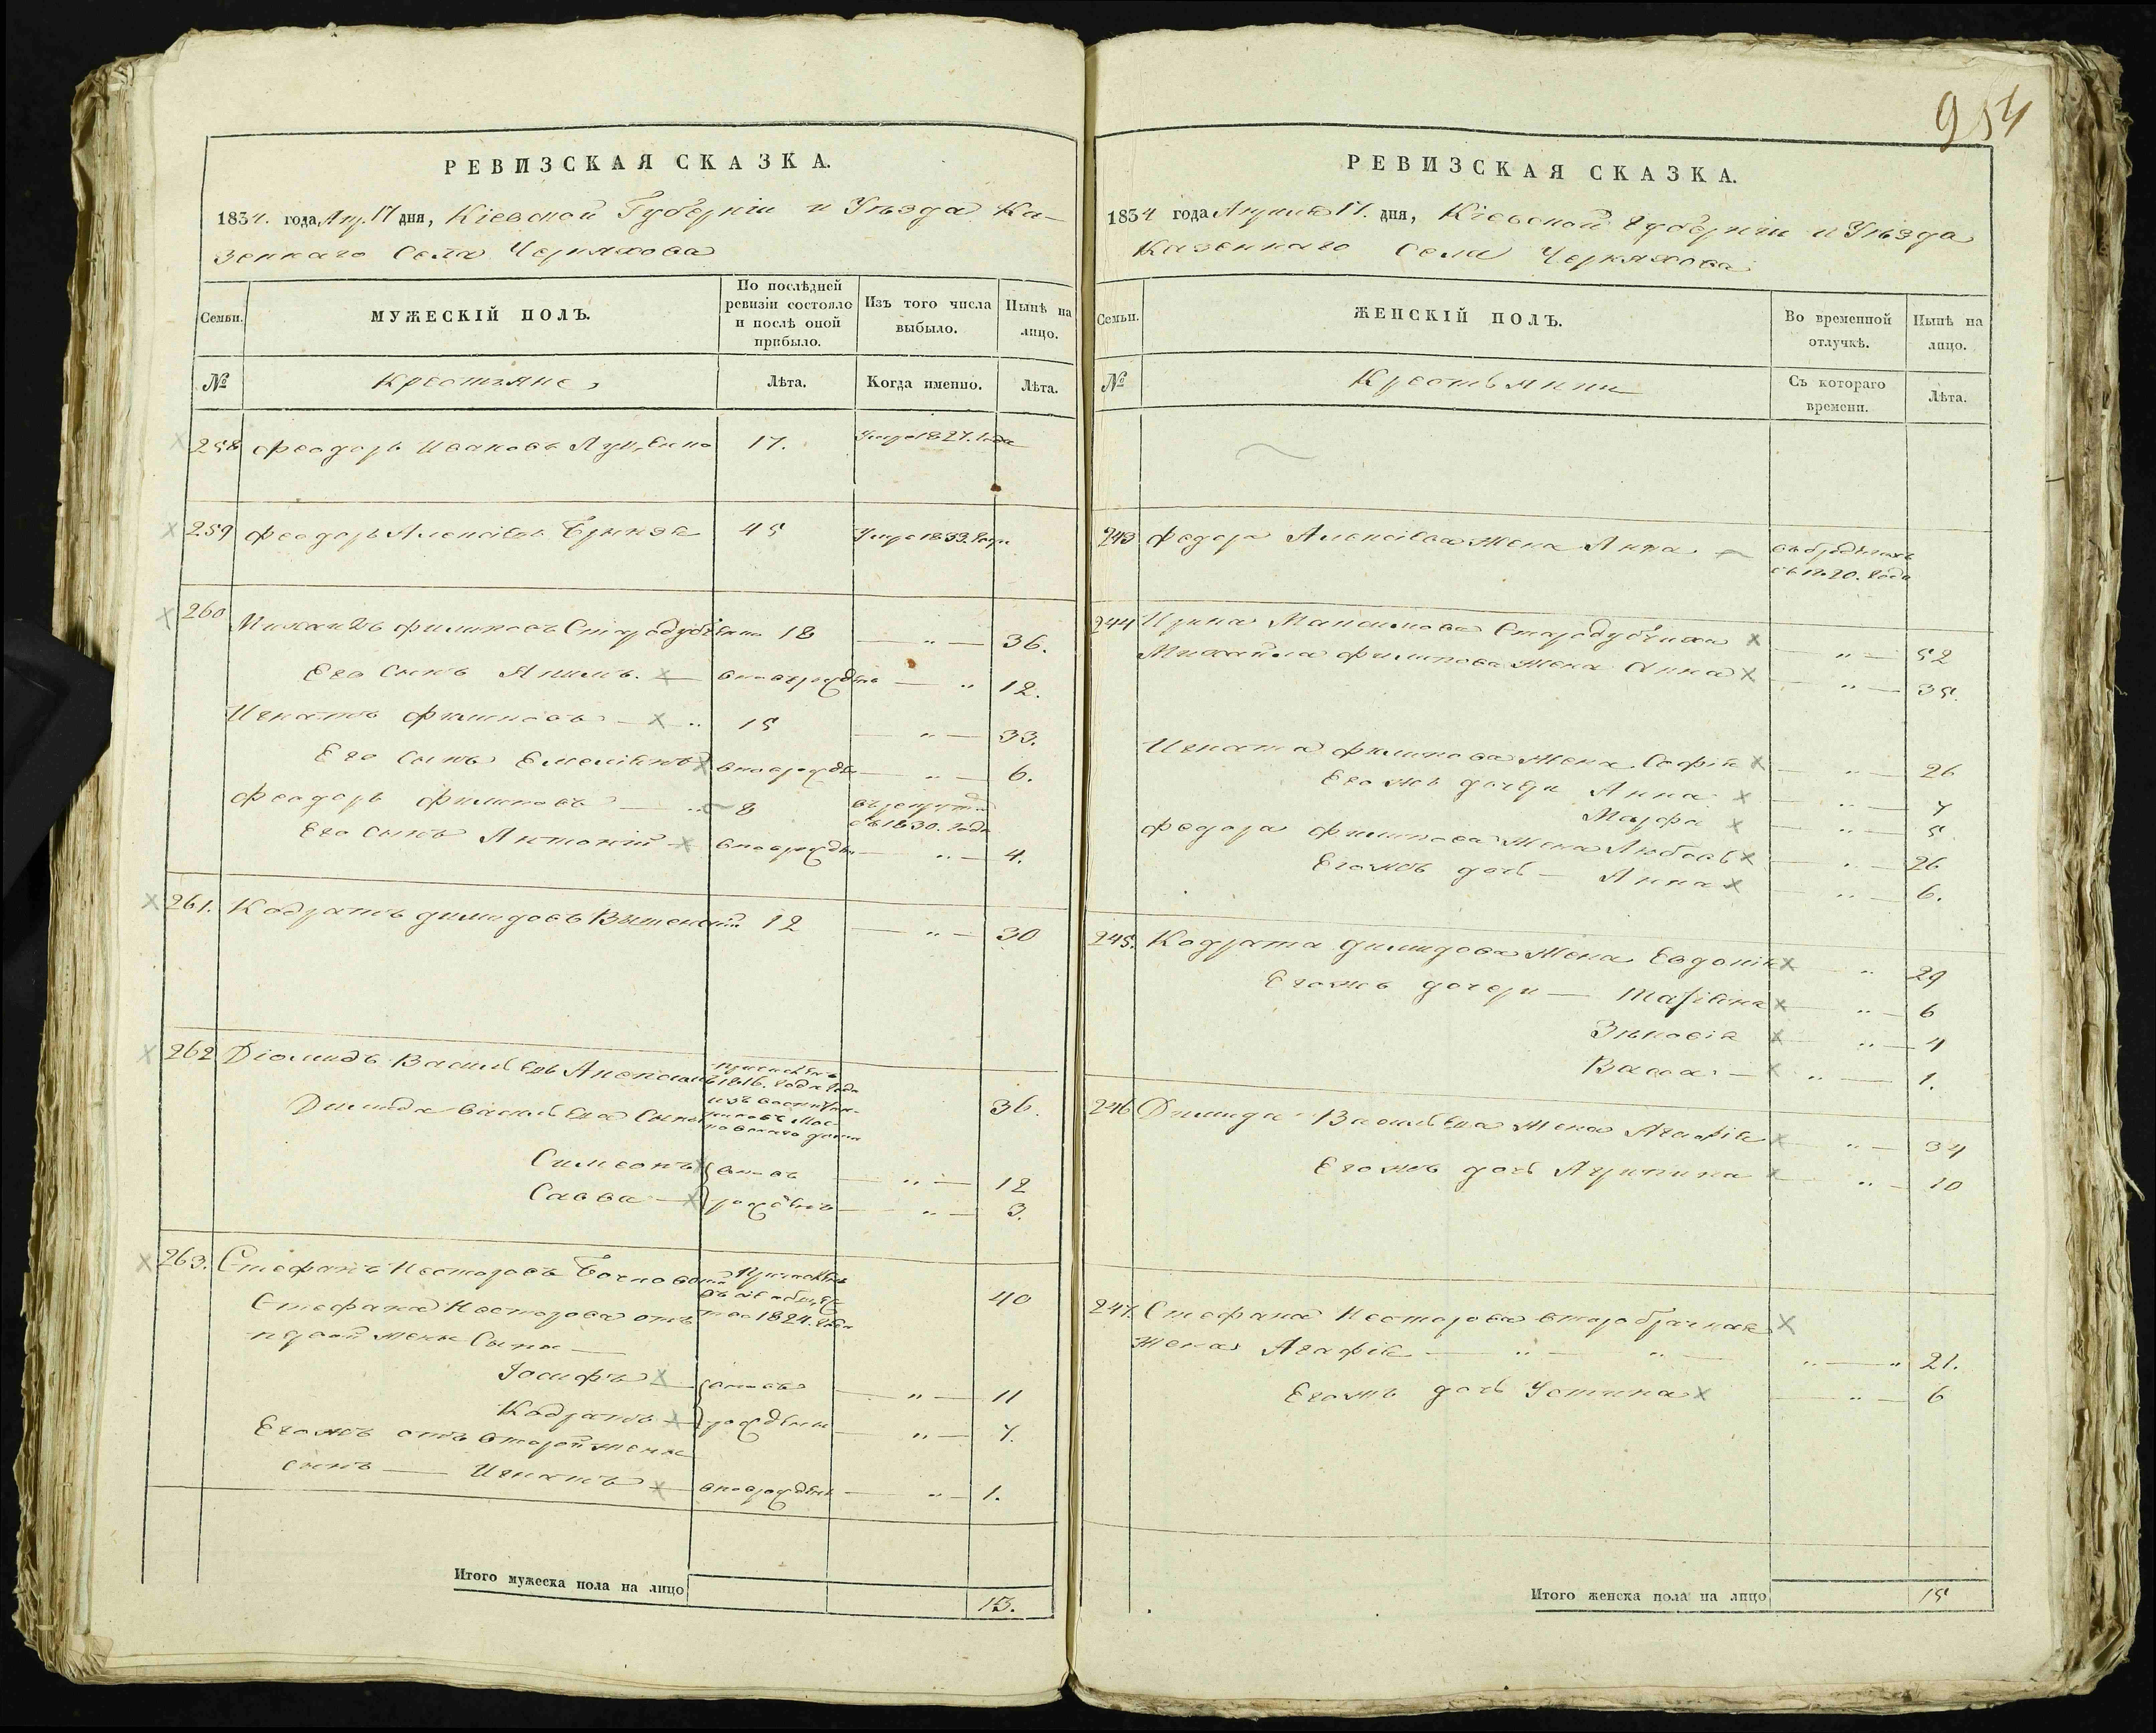 954
РЕВИЗСКАЯ СКАЗКА.
1834. года Апр. 17 дня, Кіевской Губерніи и Уѣзда Ка-
зеннаго Села Черняхова
Семьи.
МУЖЕСКІЙ ПОЛЪ.
По послѣдней ревизіи состояло и послѣ оной прибыло.
Изъ того числа выбыло.
Нынѣ на лицо.
№
Крестьяне
Лѣта.
Когда именно.
Лѣта.
258 Феодоръ Ивановъ 17. Умре 1827. Года
259 Феодоръ Алексіевъ 45 Умре 1833. Года
260 Михаилъ Филиповъ Стародубченко 18 — " — 36.
Его Сынъ Якимъ. — вновь рожденъ — " 12.
Игнатъ Филиповъ — " 15 — " — 33.
Его Сынъ Емеліанъ вновь рожденъ — " — 6.
Феодоръ Филиповъ — " 8 въ рекруты съ 1830. Года
Его Сынъ Антоній — вновь рожденъ — " — 4.
261. Кодратъ Димидовъ 12 — " — 30
262 Діомидъ Васильевъ 1816. Года 36.
Димида Васильева Сыны
Симеонъ вновь — " — 12
Савва — рожденъ — " — 3.
263. Стефанъ Несторовъ 1824. Года 40
Стефана Несторова отъ
первой жены Сыны —
Іосифъ — вновь — " — 11
Кодратъ — рождены — " — 7.
Егожъ отъ второй жены
сынъ — Игнатъ — вновь рожденъ — " — 1.
Итого мужеска пола на лицо 13.
РЕВИЗСКАЯ СКАЗКА.
1834 года Априля 17. дня, Кіевской Губерніи и Уѣзда
Казеннаго Села Черняхова
Семьи.
ЖЕНСКІЙ ПОЛЪ.
Во временной отлучкѣ.
Нынѣ на лицо.
№
Крестьянки
Съ котораго времени.
Лѣта.
243 Федора Алексіева жена Анна —
244 Ирина Максимова Стародубчиха — " — 52
Михайла Филипова жена Анна — " — 35.
Игната Филипова жена Софія — " — 26
Егожъ дочери Анна — " — 7
Марфа — " — 5.
Федора Филипова жена Любовь — " — 26
Егожъ дочь — Анна — " — 6.
245. Кодрата Димидова жена Евдокія " 29
Егожъ дочери — " — 6
Зѣновія " — 4
Васса — " — 1.
246 Димида Васильева жена Агафія " — 34
Егожъ дочь Акулина " — 10
247. Стефана Несторова второбрачная
жена Агафія — " — " — " — " 21.
Егожъ дочь Устина — " — 6
Итого женска пола на лицо 15